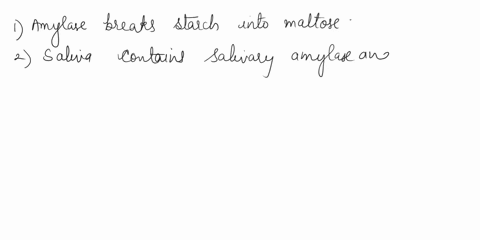 1) Amylase breaks starch into maltose.
2) Saliva contains salivary amylase an